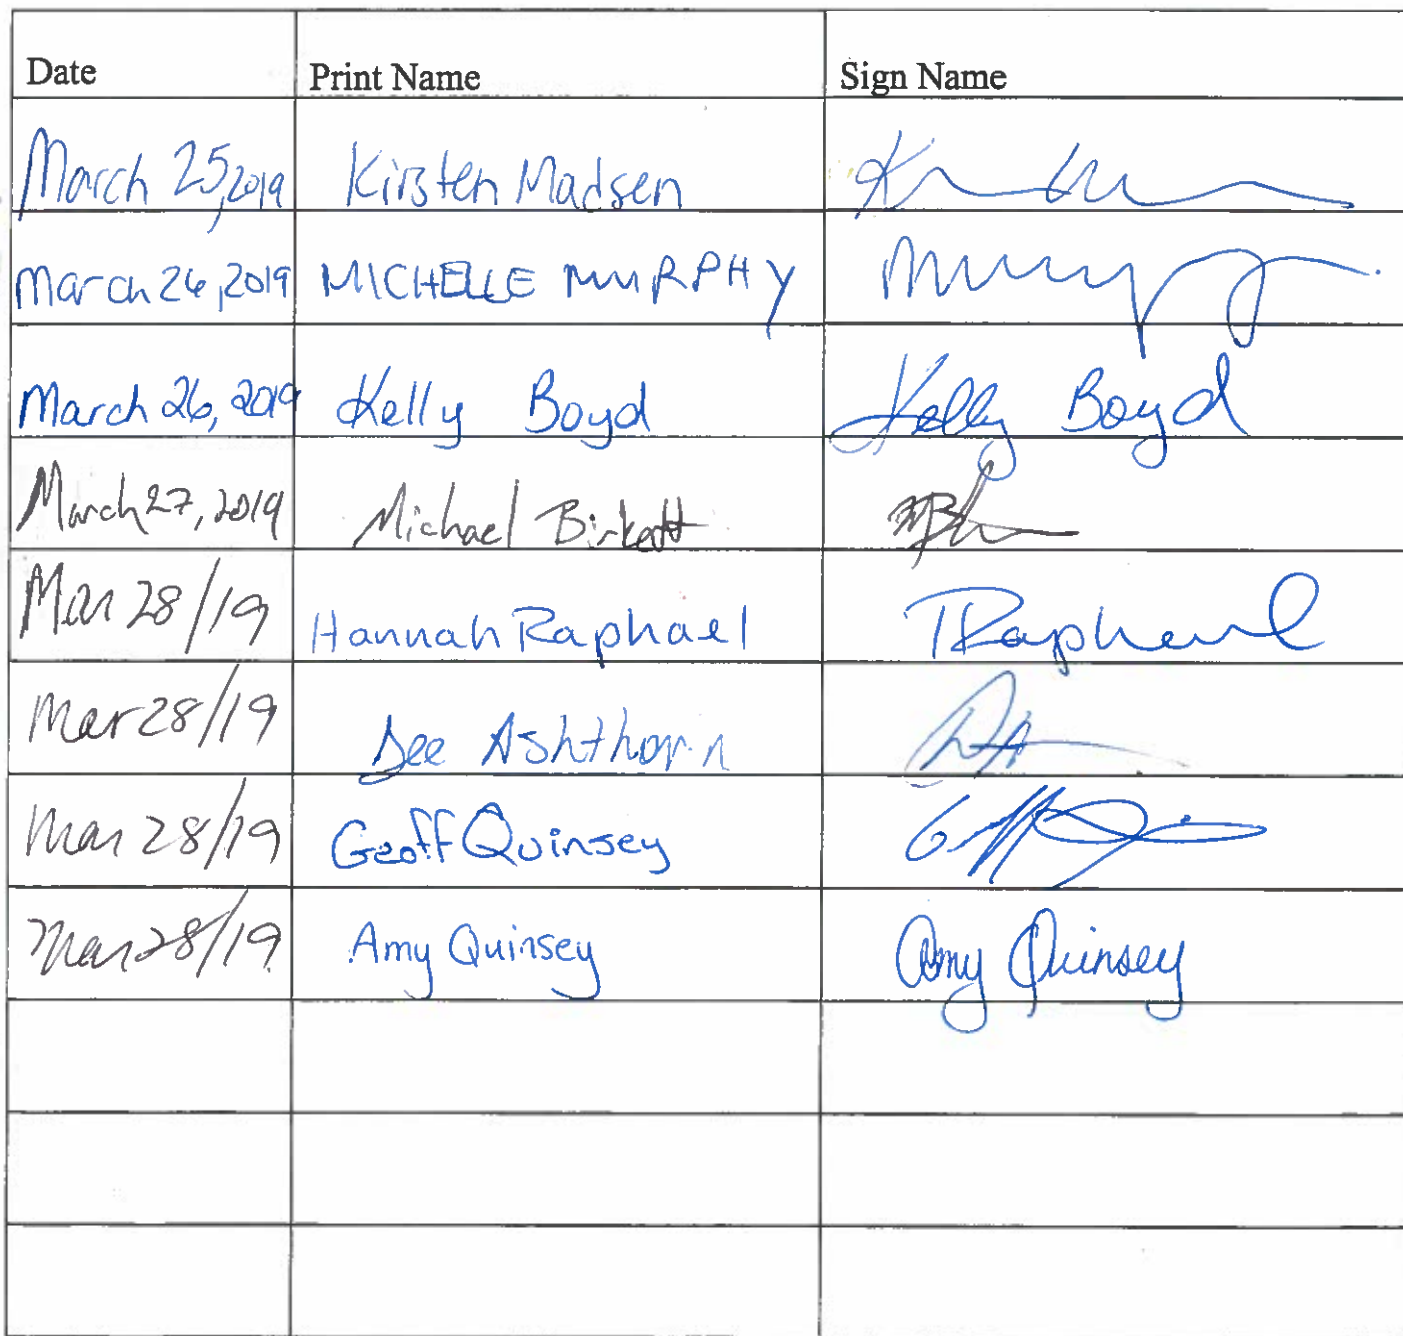 Date Print Name Sign Name
March 25, 2019 Kirsten Madsen
March 26, 2019 MICHELLE MURPHY
March 26, 2019 Kelly Boyd Kelly Boyd
March 27, 2019 Michael Birkett
Mar 28/19 Hannah Raphael Raphael
Mar 28/19 Dee Ashthorn
Mar 28/19 Geoff Quinsey
Mar 28/19 Amy Quinsey Amy Quinsey